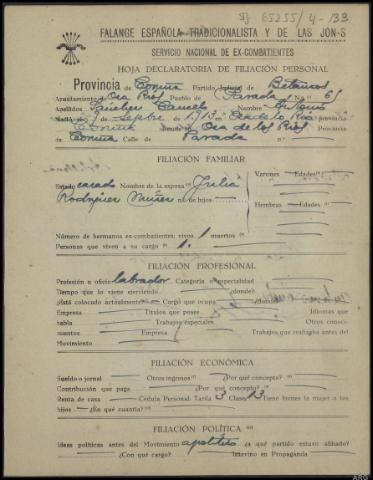 65255/4-133
FALANGE ESPAÑOLA TRADICIONALISTA Y DE LAS JON-S
SERVICIO NACIONAL DE EX-COMBATIENTES
HOJA DECLARATORIA DE FILIACIÓN PERSONAL
Provincia de Coruña Partido Judicial de Betanzos
Ayuntamiento de Oza Rios Pueblo de Parada Nº 61
Apellidos Nombre Antonio
Septbre de 1913 en Oza de los Rios provincia
Coruña Oza de los Rios Provincia
Coruña Calle de Parada
FILIACIÓN FAMILIAR
Estado casado Nombres de la esposa Julia
Rodriguez Muñez n.o de hijos
Varones Edades
Hembras Edades
Número de hermanos ex-combatientes; vivos 1 muertos
Personas que viven a su cargo 1.
FILIACIÓN PROFESIONAL
Profesión u oficio labrador Categoría o especialidad
Tiempo que lo viene ejerciendo ¿donde?
Está colocado actualmente Cargo que ocupa ¿donde
Empresa Títulos que posee Idiomas que
habla Trabajos especiales Otros conoci-
mientos Empresa Trabajos que realizaba antes del
Movimiento
FILIACIÓN ECONÓMICA
Sueldo o jornal Otros ingresos ¿Por qué concepto?
Contribución que paga ¿Por qué concepto?
Renta de casa Cédula Personal: Tarifa 3 Clase 13 Tiene bienes la mujer o los
hijos ¿En qué cuantía?
FILIACIÓN POLÍTICA
Ideas políticas antes del Movimiento apolitico ¿a qué partido estuvo afiliado?
¿Con qué cargo? Intervino en Propaganda